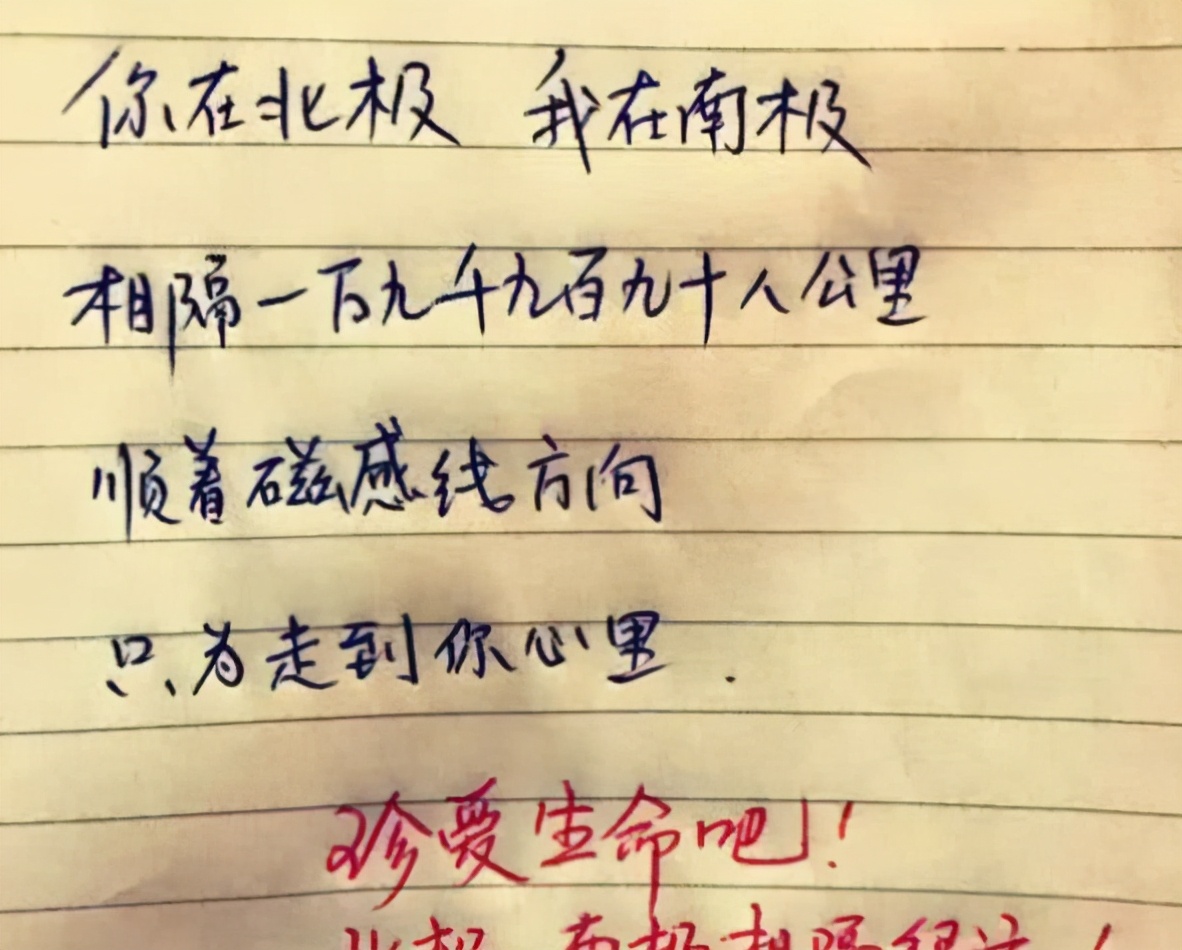 你在北极 我在南极
相隔一万九千九百九十八公里
顺着磁感线方向
只为走到你心里.
珍爱生命吧!
北极、南极相隔很远!